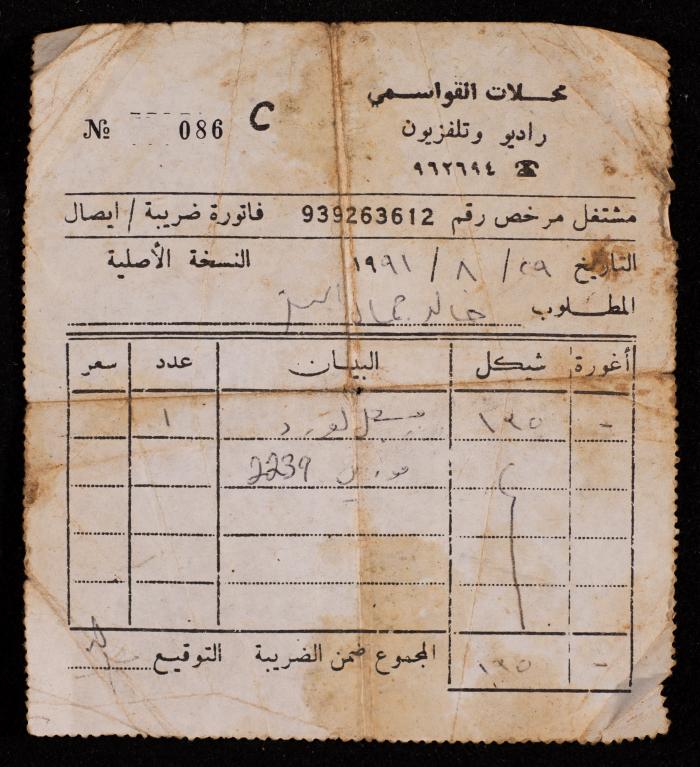 محلات القواسمي
راديو وتلفزيون
☎ ٩٦٢٦٩٤
№ 086 C
مشتغل مرخص رقم 939263612 فاتورة ضريبة / ايصال
التاريخ ٢٩ / ٨ / ١٩٩١ النسخة الأصلية
المطلوب خالد جمال
أغورة شيكل البيان عدد سعر
- ١٣٥ مسجل ١
2239
المجموع ضمن الضريبة - ١٣٥ التوقيع